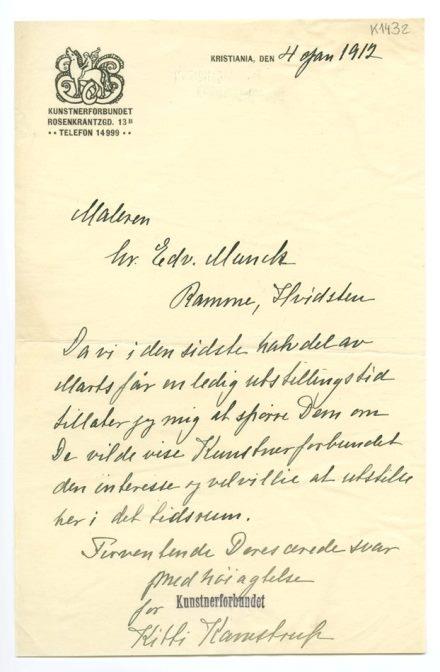 K1432
KRISTIANIA, DEN 4 Jan 1912
KUNSTNERFORBUNDET
ROSENKRANTZGD. 13 B
•• TELEFON 14999 ••
Maleren
hr. Edv. Munch
Ramme, Hvidsten
Da vi i den sidste halvdel av
Marts får en ledig utstillingstid
tillater jeg mig at spörre Dem om
De vilde vise Kunstnerforbundet
den interesse og velvillie at utstille
her i det tidsrum.
Forventende Deres ærede svar
med höiagtelse
for Kunstnerforbundet
Kitti Kamstrup